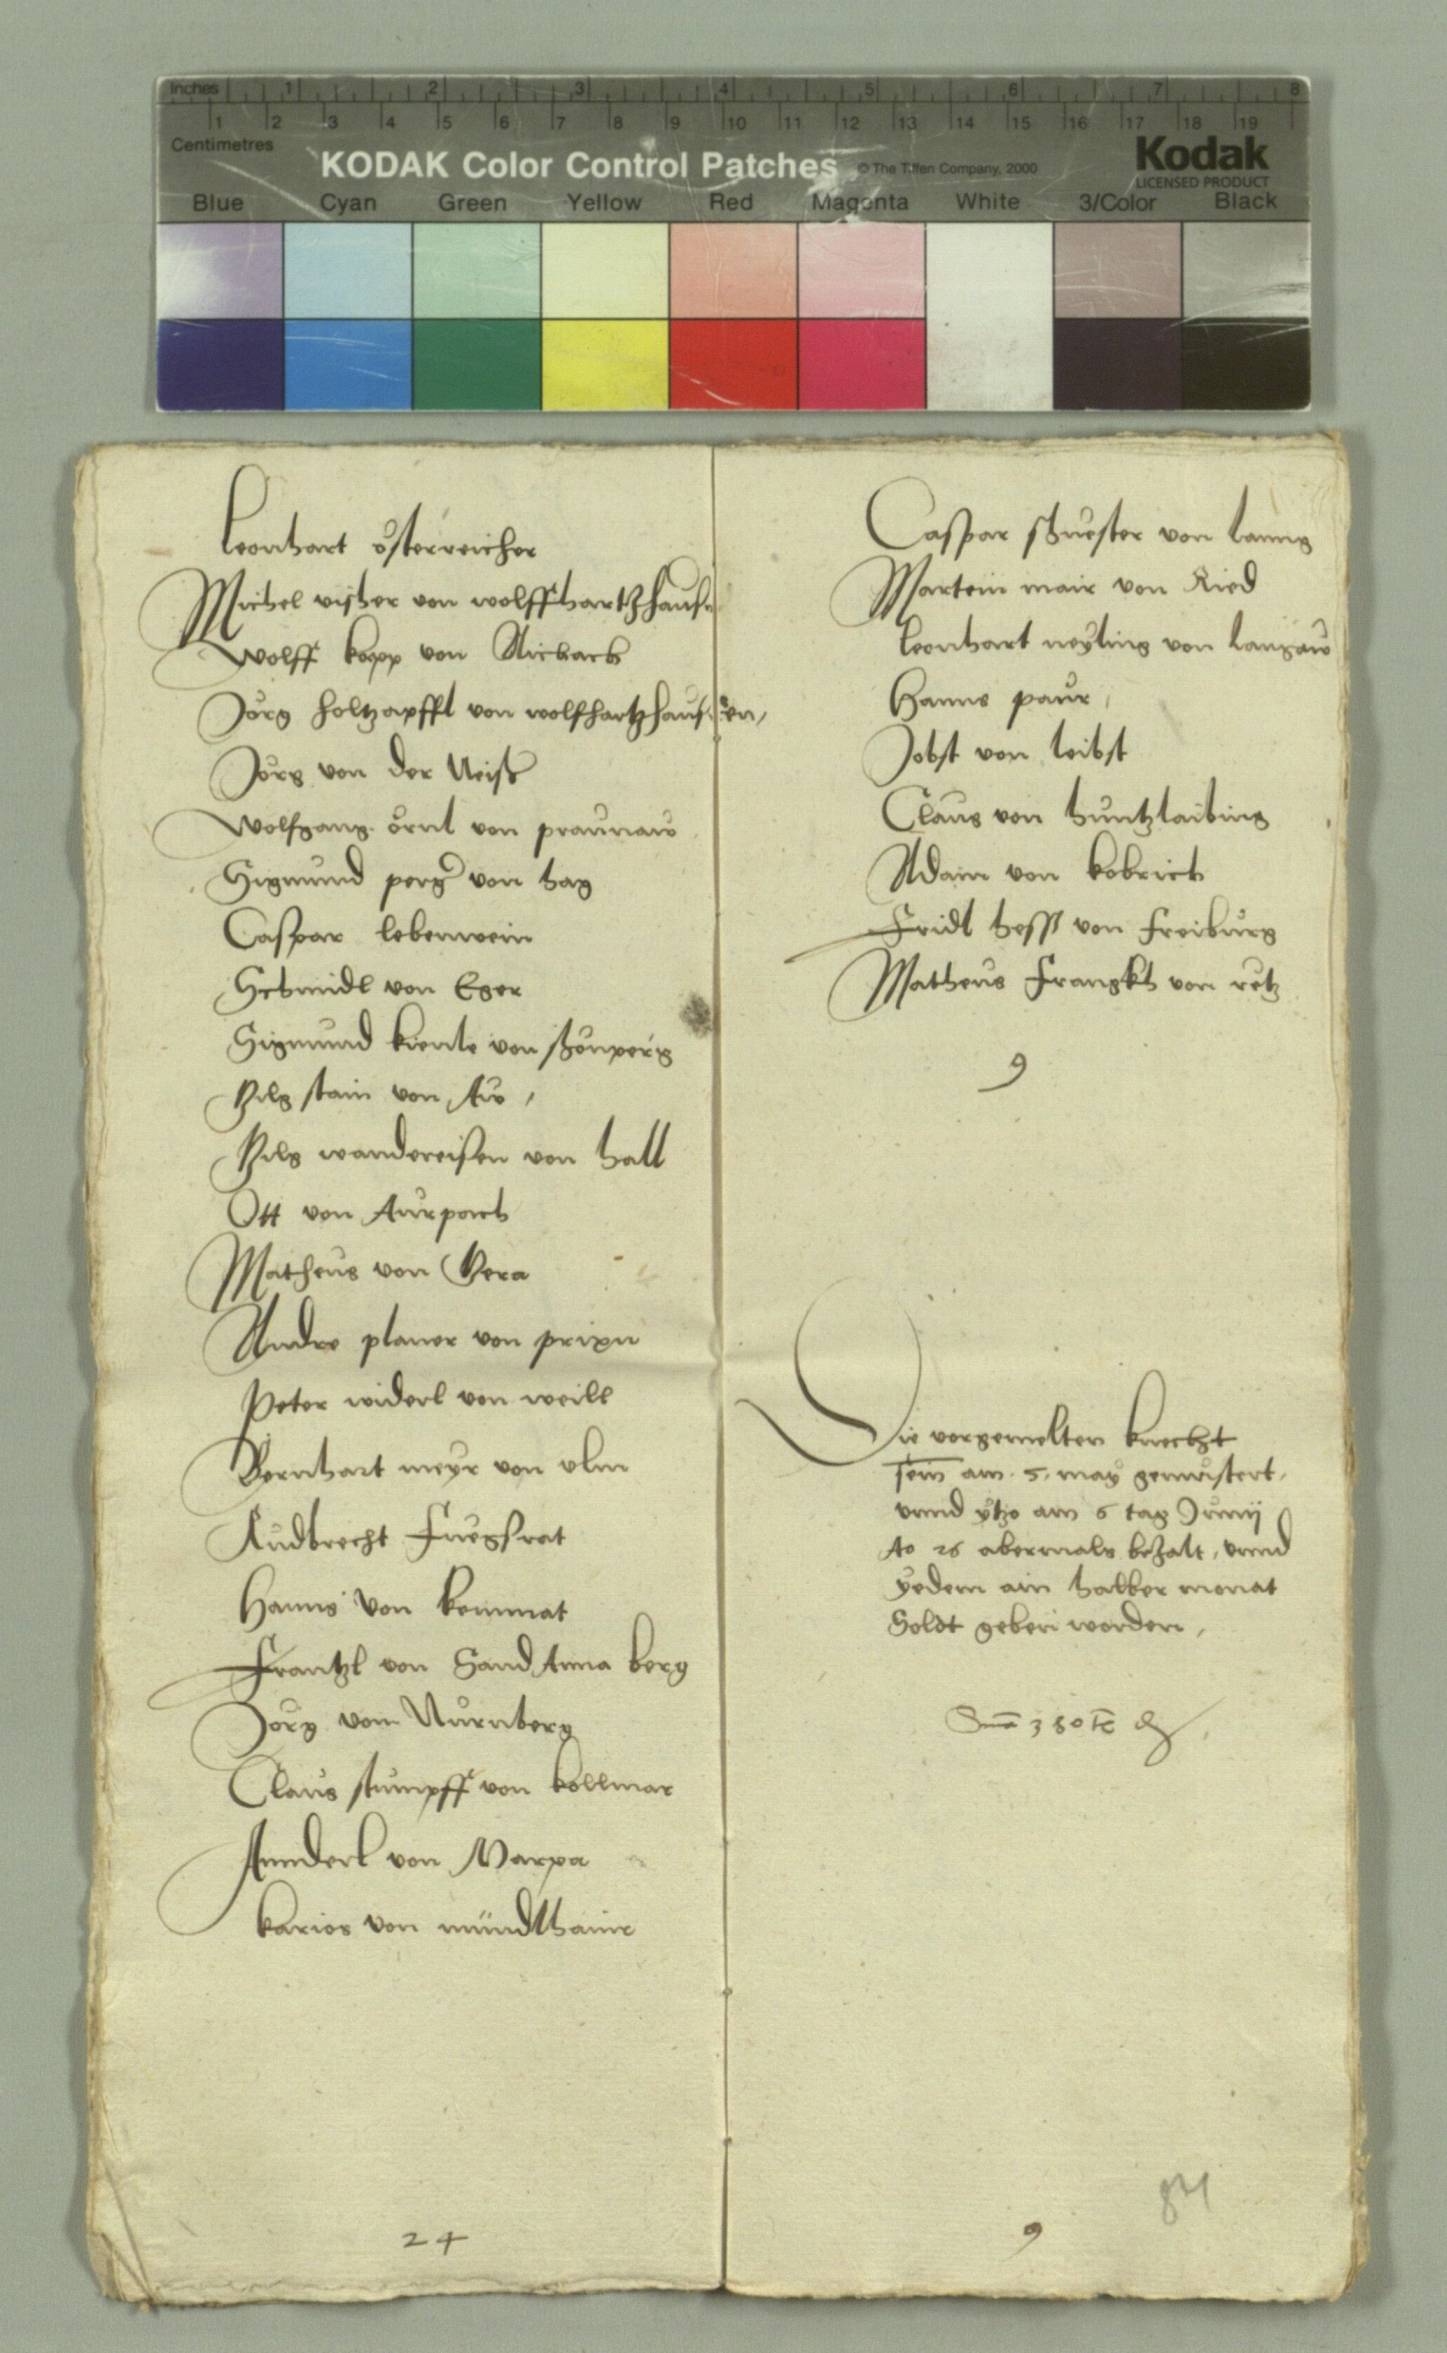 Inches 1 2 3 4 5 6 7 8
1 2 3 4 5 6 7 8 9 10 11 12 13 14 15 16 17 18 19
Centimetres
KODAK Color Control Patches © The Tiffen Company, 2000 Kodak
LICENSED PRODUCT
Blue Cyan Green Yellow Red Magenta White 3/Color Black
Leonhart österreicher
Michel vischer von wolffhartzhausn
Wolff kopp von Aichach
Jörg holtzapffl von wolfhartzhausen,
Jörg von der Neiss
Wolfgang örnl von praunaw
Sigmund perger von hag
Caspar lebenwein
Schmidl von Eger
Sigmund kienle von schönperg
Gilg stain von Aw,
Gilg wandereisen von hall
Ott von Aurpach
Matheus von Gera
Andre planer von prixn
Peter widerl von weill
Bernhart meyr von vlm
Rudbrecht
Hanns von kemnat
Frantzl von Sand Anna berg
Jörg von Nürnberg
Claus stumpff von kollmar
Annderl von
karios von
24
Caspar schuester von
Martein mair von Ried
Leonhart neyling von
Hanns paur,
Jobst von leibst
Claus von
Adam von kobrich
Fridl hess von Freiburg
Matheus Frangkh von retz
9
Die vorgemelten knecht
sein am 5. may gemustert,
vnnd ytzo am 6 tag Junij
Ao 26 abermals bezalt, vnnd
yedem ain halber monat
Soldt geben worden,
Sma 380
84
9